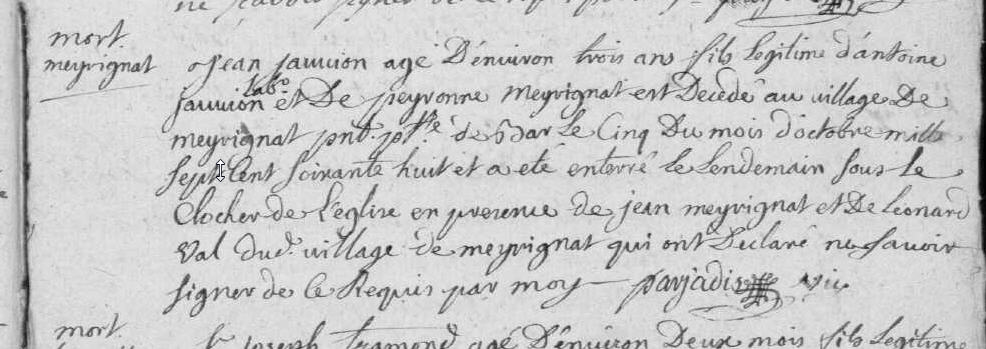 mort.
meyrignat
Jean Jauvion agé D'environ trois ans fils legitime d'antoine
Jauvion labo.r et De peyronne meyrignat est Decedé au village De
meyrignat pnt. p.sse de Bar Le Cinq Du mois d'octobre mille
sept Cent soixante huit et a eté enterré le Lendemain sous Le
Clocher de L'eglise en presence de jean meyrignat et De Leonard
Val dud. village de meyrignat qui ont Declaré ne savoir
signer de Ce Requis par moy parjadis vic.
mort.
joseph tramond agé D'environ Deux mois fils legitime